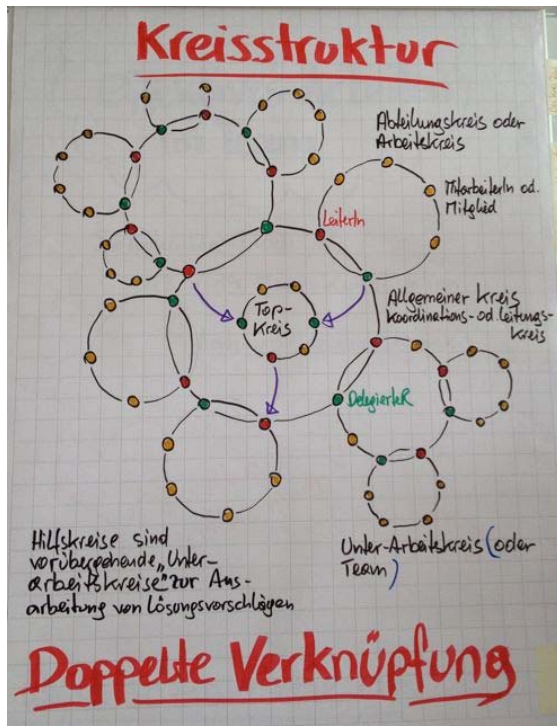 Kreisstruktur
Abteilungskreis oder
Arbeitskreis
MitarbeiterIn od.
Mitglied
LeiterIn
Top-
Kreis
Allgemeiner Kreis
Koordinations- od. Leitungs-
kreis
DelegierteR
Hilfskreise sind
vorübergehende „Unter-
arbeitskreise" zur Aus-
arbeitung von Lösungsvorschlägen
Unter-Arbeitskreis (oder
Team)
Doppelte Verknüpfung